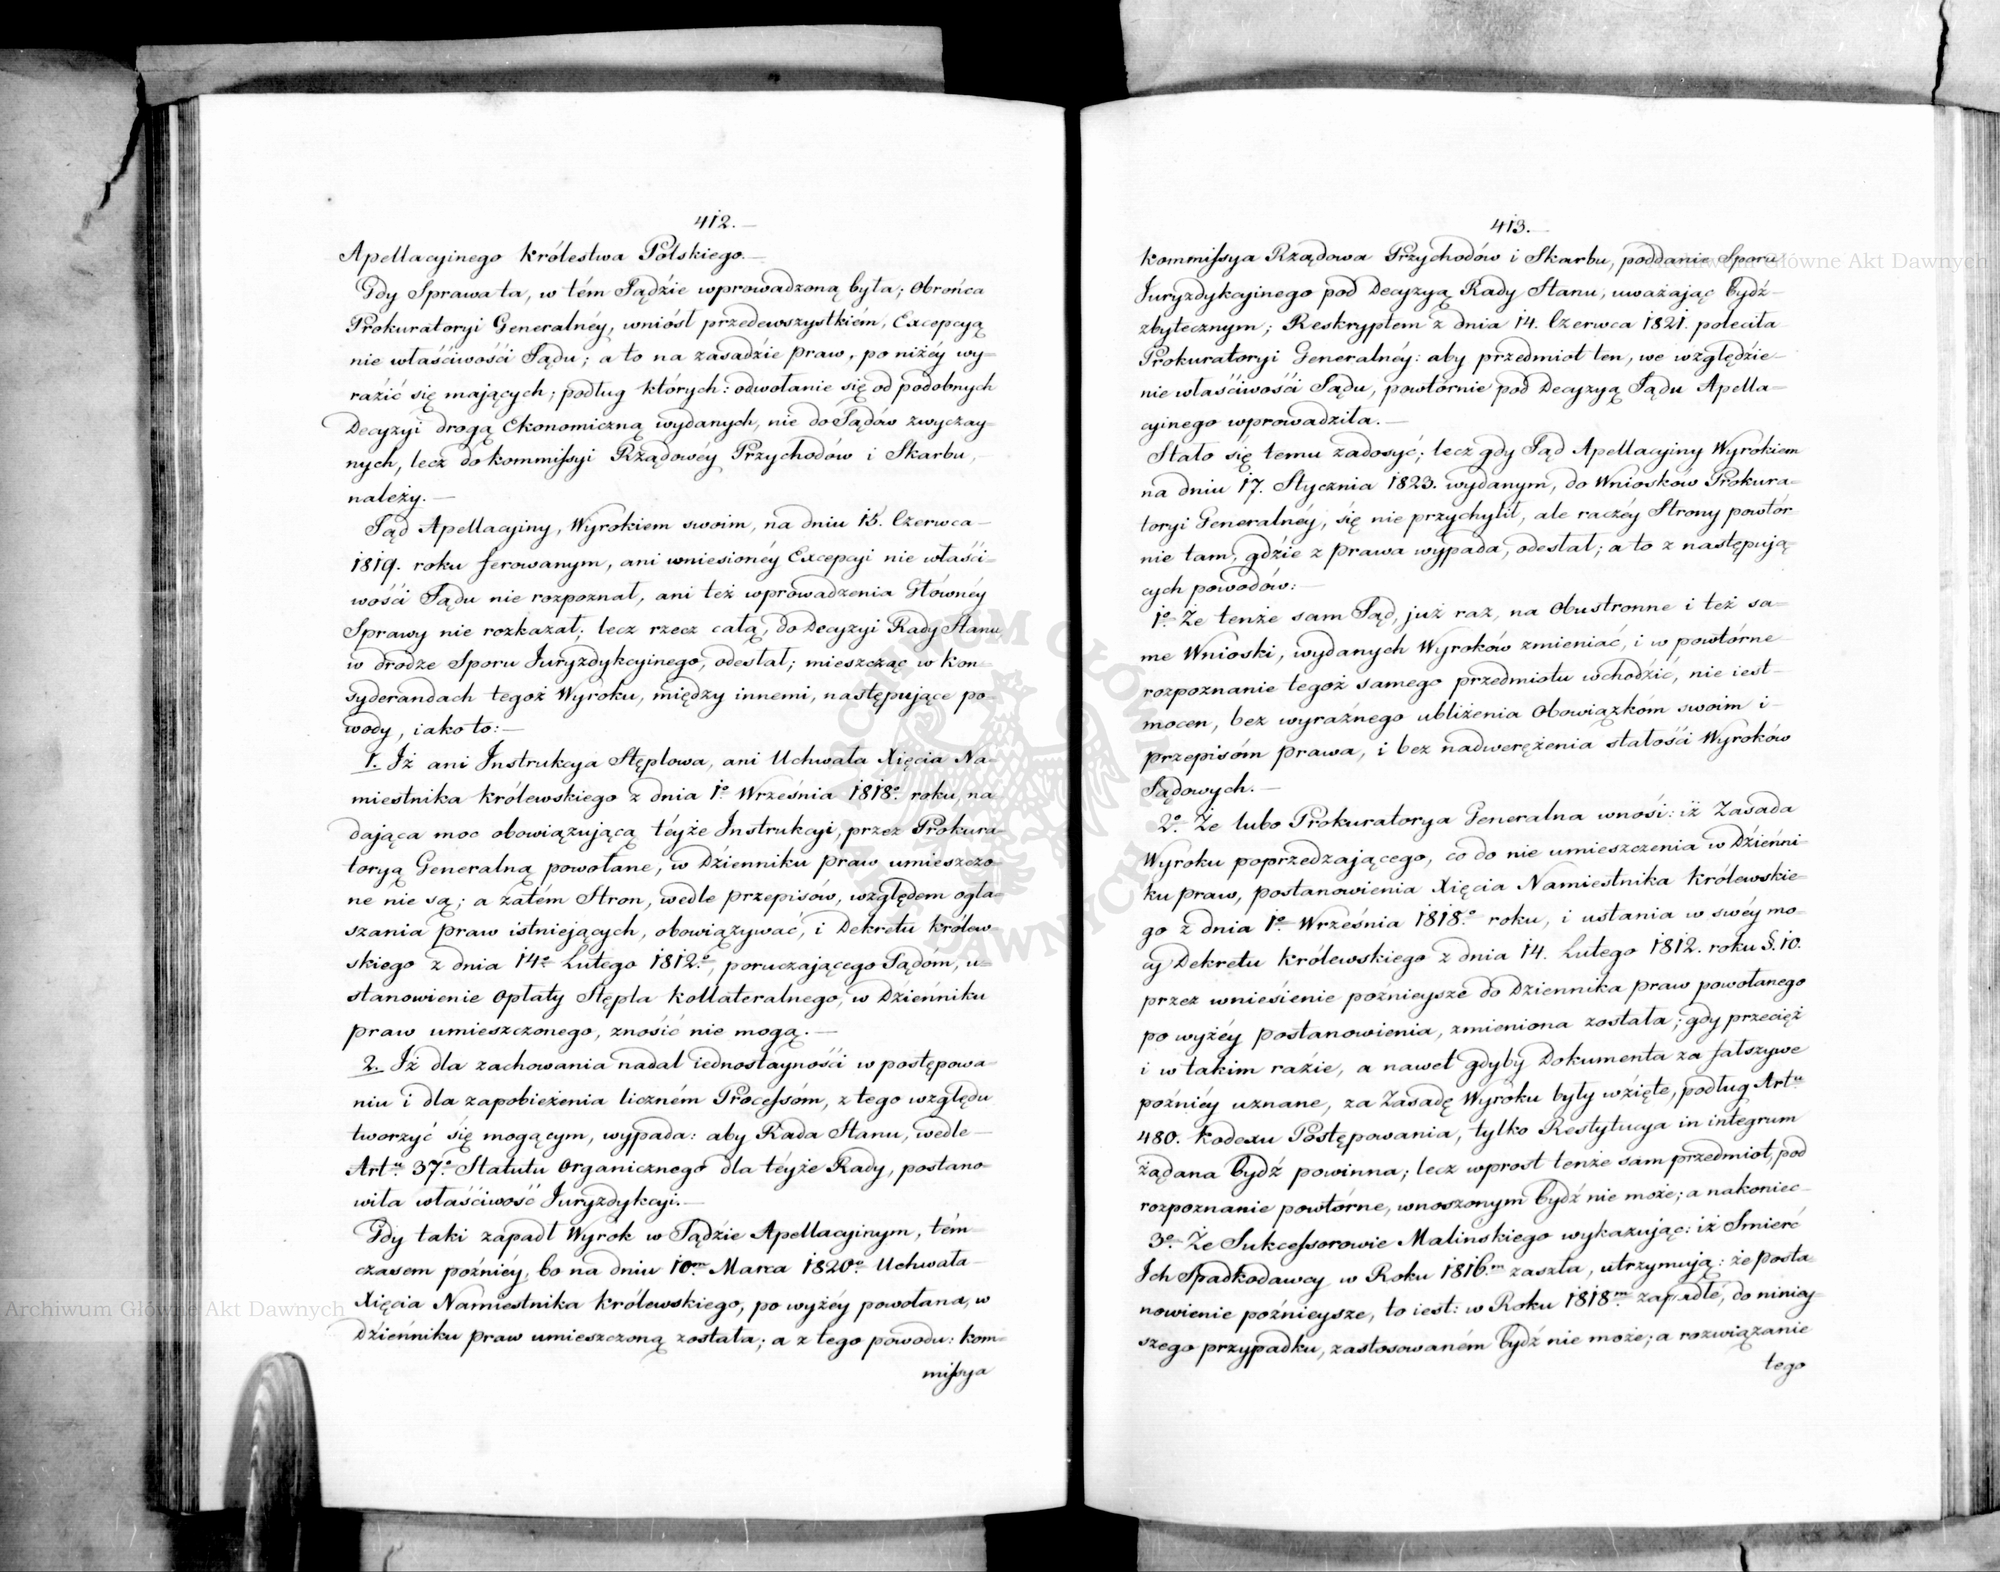 412.—
Apellacyinego Królestwa Polskiego.—
Gdy Sprawa ta, w tém Sądzie wprowadzoną była; Obrońca
Prokuratoryi Generalnéy, wniósł przedewszystkiém, Excepcyą
nie właściwości Sądu; a to na zasadzie Praw, po niżéy wy=
razić się mających; podług których: odwołanie się od podobnych
Decyzyi drogą Ekonomiczną wydanych, nie do Sądów zwyczay=
nych, lecz do Kommissyi Rządowéy Przychodów i Skarbu,—
należy.—
Sąd Apellacyiny, Wyrokiem swoim, na dniu 15. Czerwca—
1819. roku ferowanym, ani wniesionéy Excepcyi nie właści=
wości Sądu nie rozpoznał, ani też wprowadzenia Głównéy
Sprawy nie rozkazał; lecz rzecz całą, do Decyzyi Rady Stanu
w drodze Sporu Juryzdykcyinego, odesłał; mieszcząc w Kon=
syderandach tegoż Wyroku, między innemi, następujące po=
wody, iako to:—
1. Jż ani Jnstrukcya Stęplowa, ani Uchwała Xięcia Na=
miestnika Królewskiego z dnia 1º Września 1818º roku, na
dająca moc obowiązującą téyże Jnstrukcyi, przez Prokura=
toryą Generalną powołane, w Dzienniku Praw umieszczo=
né nie są; a zatém Stron, wedle przepisów, względem ogła=
szania praw istniejących, obowiązywać, i Dekretu Królew=
skiego z dnia 14º Lutego 1812.º, poruczającego Sądóm, u=
stanowienie Opłaty Stępla Kollateralnego, w Dzienniku
Praw umieszczonego, znosić nie mogą.—
2. Jż dla zachowania nadal iednostayności w postępowa=
niu i dla zapobieżenia liczném Processóm, z tego względu
tworzyć się mogącym, wypada: aby Rada Stanu, wedle—
Artu 37º Statutu Organicznego dla téyże Rady, postano=
wiła właściwość Juryzdykcyi.—
Gdy taki zapadł Wyrok w Sądzie Apellacyinym, tém=
czasem poźniéy, bo na dniu 10m Marca 1820º Uchwała—
Xięcia Namiestnika Królewskiego, po wyżéy powołana, w
Dzienniku Praw umieszczoną została; a z tego powodu: Kom=
missya
413.—
Kommissya Rządowa Przychodów i Skarbu, poddanie Sporu
Juryzdykcyinego pod Decyzyą Rady Stanu, uważając bydź—
zbytecznym; Reskryptem z dnia 14. Czerwca 1821. poleciła
Prokuratoryi Generalnéy: aby przedmiot ten, we względzie—
nie właściwości Sądu, powtórnie pod Decyzyą Sądu Apella=
cyinego wprowadziła.—
Stało się temu zadosyć; lecz gdy Sąd Apellacyiny Wyrokiem
na dniu 17. Stycznia 1823. wydanym, do Wniosków Prokura=
toryi Generalnéy, się nie przychylił, ale raczéy Strony powtór
nie tam, gdzie z Prawa wypada, odesłał; a to z następują=
cych powodów:—
1º Że tenże sam Sąd, już raz, na Obustronne i też sa=
me Wnioski, wydanych Wyroków zmieniać, i w powtórne—
rozpoznanie tegoż samego przedmiotu wchodzić, nie iest—
mocen, bez wyraźnego ubliżenia Obowiązkóm swoim i—
przepisóm Prawa, i bez nadwerężenia stałości Wyroków
Sądowych.—
2º Że lubo Prokuratorya Generalna wnosi: iż Zasada
Wyroku poprzedzającego, co do nie umieszczenia w Dzienni=
ku praw, postanowienia Xięcia Namiestnika Królewskie=
go z dnia 1º Września 1818º roku, i ustania w swéy mo=
cy Dekretu Królewskiego z dnia 14. Lutego 1812. roku §. 10.
przez wniesienie poźnieysze do Dziennika Praw powołanego
po wyżéy Postanowienia, zmieniona została; gdy przecięż
i w takim razie, a nawet gdyby Dokumenta za fałszywe
poźniéy uznane, za Zasadę Wyroku były wzięte, podług Artu
480. Kodexu Postępowania, tylko Restytucya in integrum
żądana bydź powinna; lecz wprost tenże sam przedmiot, pod
rozpoznanie powtórne, wnoszonym bydź nie może; a nakoniec—
3º Że Sukcessorowie Malinskiego wykazując: iż Smierć
Jch Spadkodawcy w Roku 1816m zaszła, utrzymują: że Posta=
nowienie poźnieysze, to iest: w Roku 1818m zapadłe, do niniey=
szego przypadku, zastosowaném bydź nie może; a rozwiązanie
tego
Archiwum Główne Akt Dawnych
Archiwum Główne Akt Dawnych
ARCHIWUM GŁÓWNE AKT DAWNYCH